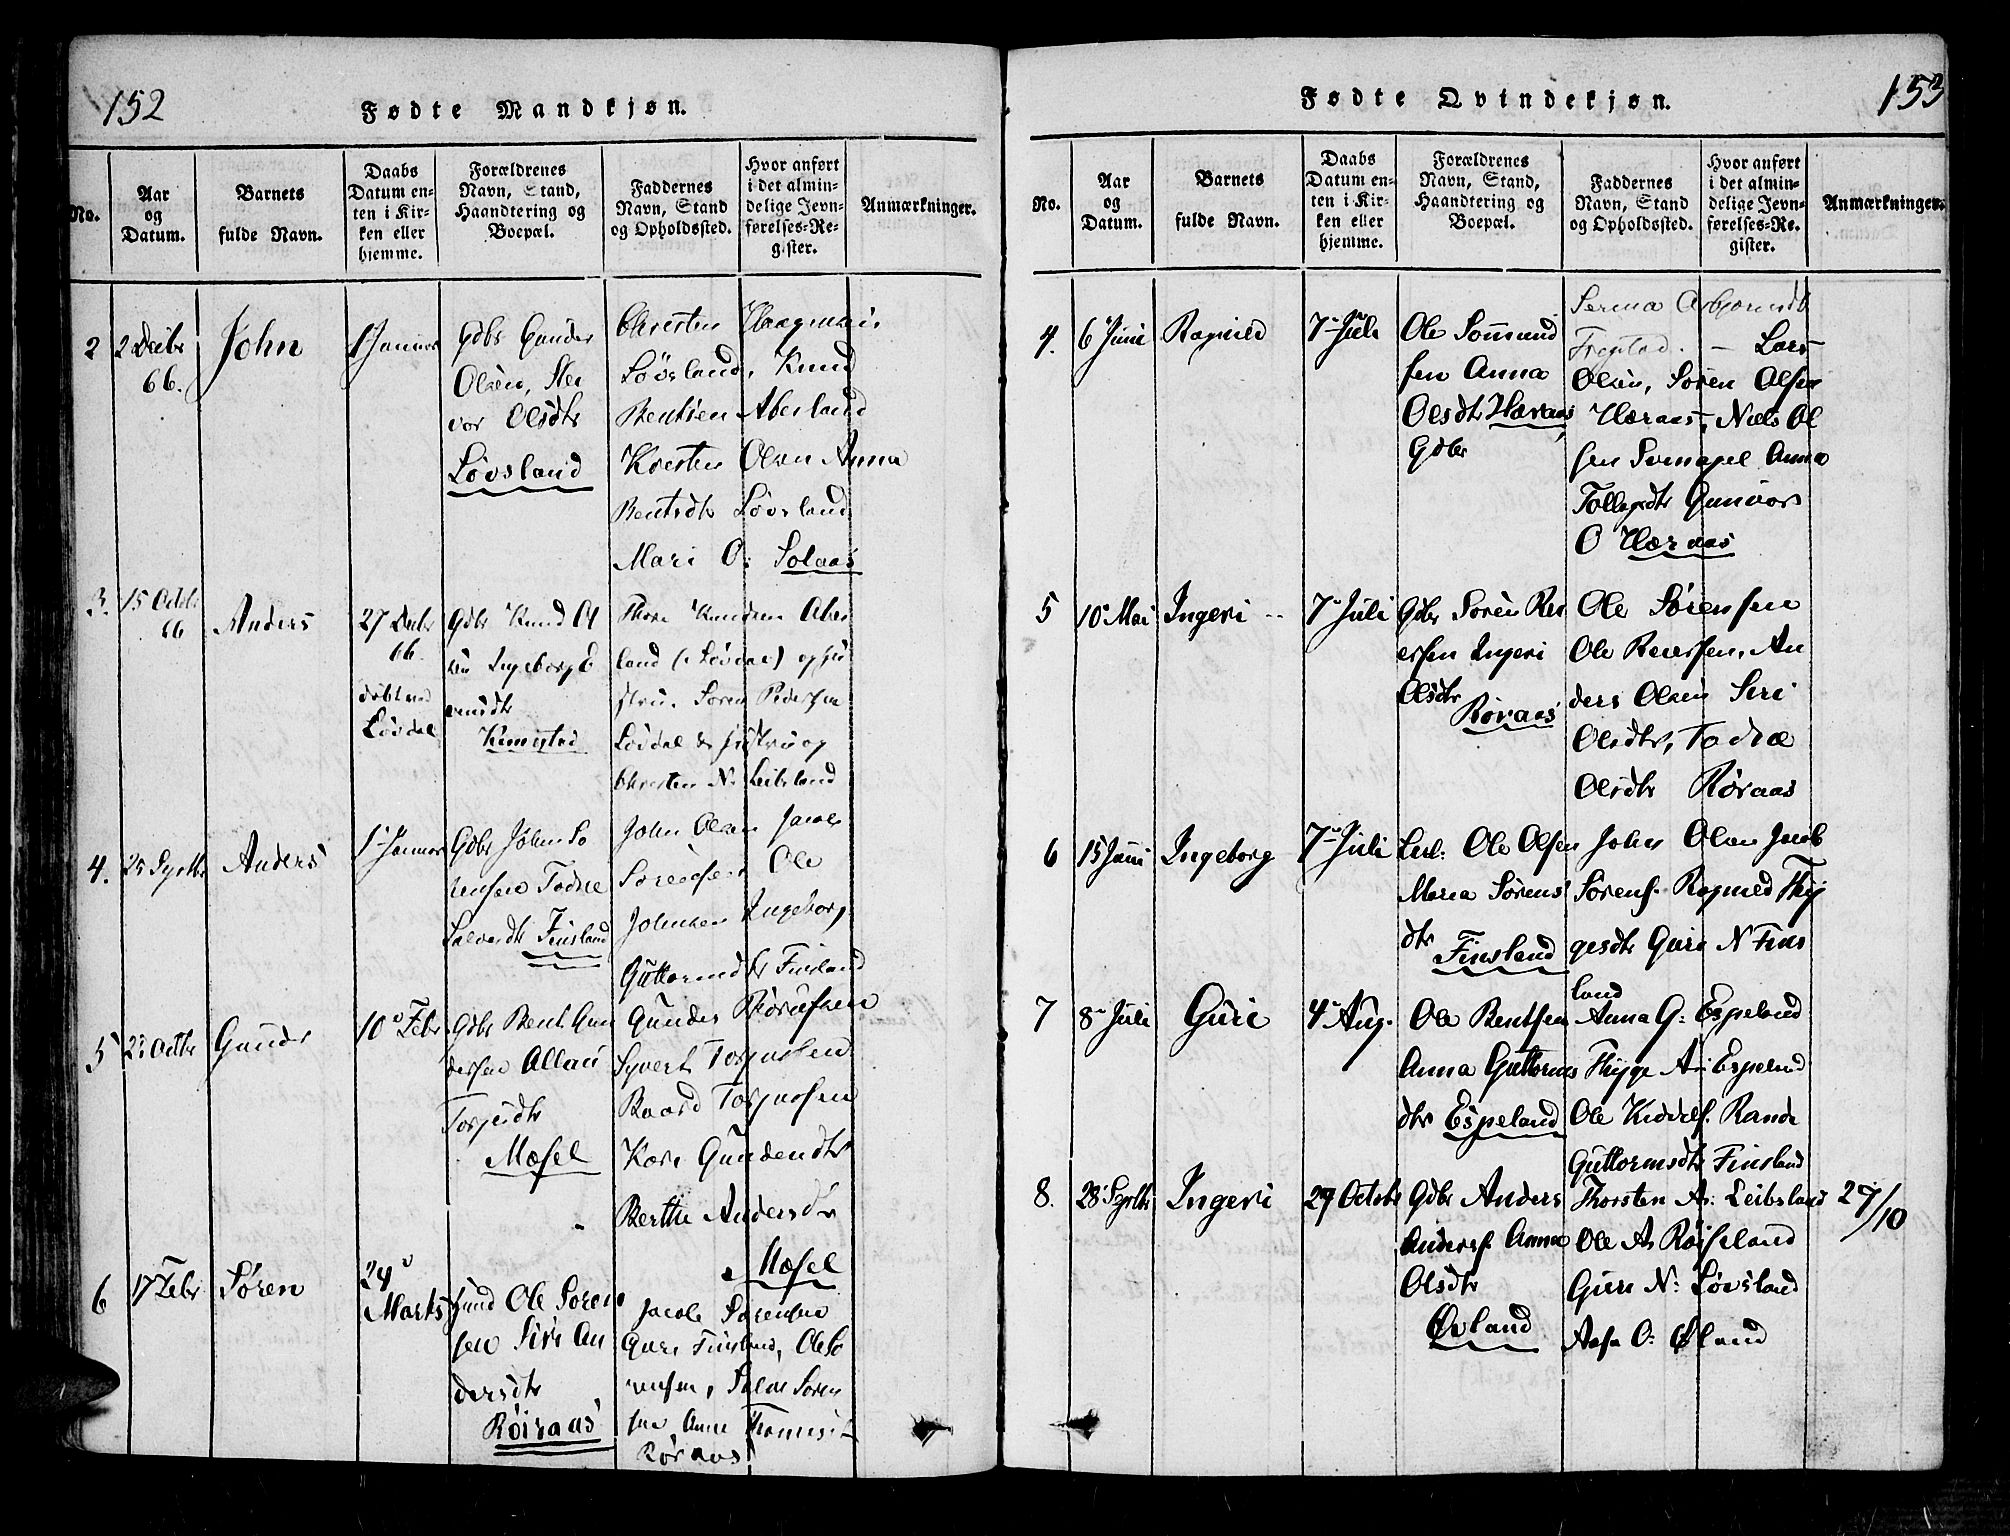 152
Fødte Mandkjøn.
No.
Aar
og
Datum.
Barnets
fulde Navn.
Daabs
Datum en-
ten i Kir-
ken eller
hjemme.
Forældrenes
Navn, Stand,
Haandtering og
Boepæl.
Faddernes
Navn, Stand
og Opholdssted.
Hvor anført
i det almin-
delige Jevn-
førelses-Re-
gister.
Anmærkninger.
2
2 Decbr
66.
John
1 Januar
Gdbr Gunder
Olsen,
vor Olsdtr
Løvsland
Christen Haagensen
Løvsland, Knud
Bentsen Aberland
Kristen Olsen Anna
Bentsdtr Løvsland
Mari O: Solaas
3.
15 Octbr
66
Anders
27 Decbr
66.
døbt ved
Løvdal
Gdbr Knud Ol
sen Ingeborg E
vensdtr
Thore Knudsen Aber
land (Løvdal) og hu
stru. Søren Pedersen
Løvdal & hustru og
Christen N. Leibsland
4.
25 Septbr
Anders
1 Januar
Gdbr John Sø
rensen Todne
Salvesdtr Finsland
John Olsen Jacob
Sørensen Ole
Johnsen Ingeborg
Guttormsdtr Finsland
5
23 Octbr
Gunder
10 Febr
Gdbr Bent Gun
dersen Allau
Torjusdtr
Mæsel
Gunder Rørulfsen
Syvert Torjussen
Baard Torjussen
Kare Gundersdtr
Berthe Andersdtr
Mæsel
6
17 Febr
Søren
24
Marts
Husmd Ole Søren
sen Siri An
dersdtr
Røiraas
Jacob Sørensen
Guri Finsland, Ole Sø
rensen, Salve Søren
sen Anne Thomesdt
Røraas
153
Fødte Qvindekjøn.
No.
Aar
og
Datum.
Barnets
fulde Navn.
Daabs
Datum en-
ten i Kir-
ken eller
hjemme.
Forældrenes
Navn, Stand,
Haandtering og
Boepæl.
Faddernes
Navn, Stand
og Opholdssted.
Hvor anført
i det almin-
delige Jevn-
førelses-Re-
gister.
Anmærkninger.
4.
6 Juni
Ragnild
7 Juli
Ole Somund
sen Anna
Olsdtr Hæraas
Gdbr
Serina Asbjørnsdt
Frøstad. – Lars
Olsen, Søren Olsen
Hæraas, Niels Ol
sen Anna
Tollagsdtr Gunvor
O Hæraas
5
10 Mai
Ingeri
7 Juli
Gdbr Søren Rei
ersen Ingeri
Olsdtr
Røraas
Ole Sørensen
Ole Reiersen, An
ders Olsen Siri
Olsdtr, Todne
Olsdtr Røraas
6
15 Juni
Ingeborg
7 Juli
Ole Olsen
Maria Sørens
dtr
Finsland
John Olsen Jacob
Sørens. Ragnild Thy
gesdtr Guri N Fins
land
7
8 Juli
Guri
4 Aug.
Ole Bentsen
Anna Guttorms
dtr Espeland
Anna G: Espeland
Thyge A: Espeland
Ole Kiddels. Rande
Guttormsdtr Finsland
8.
28 Septbr
Ingeri
29 Octobr
Gdbr Anders
Anders. Anna
Olsdtr
Øvland
Thorsten A: Leibsland
Ole A. Røiseland
Guri N: Løvsland
Aasa O: Øvland
29/10